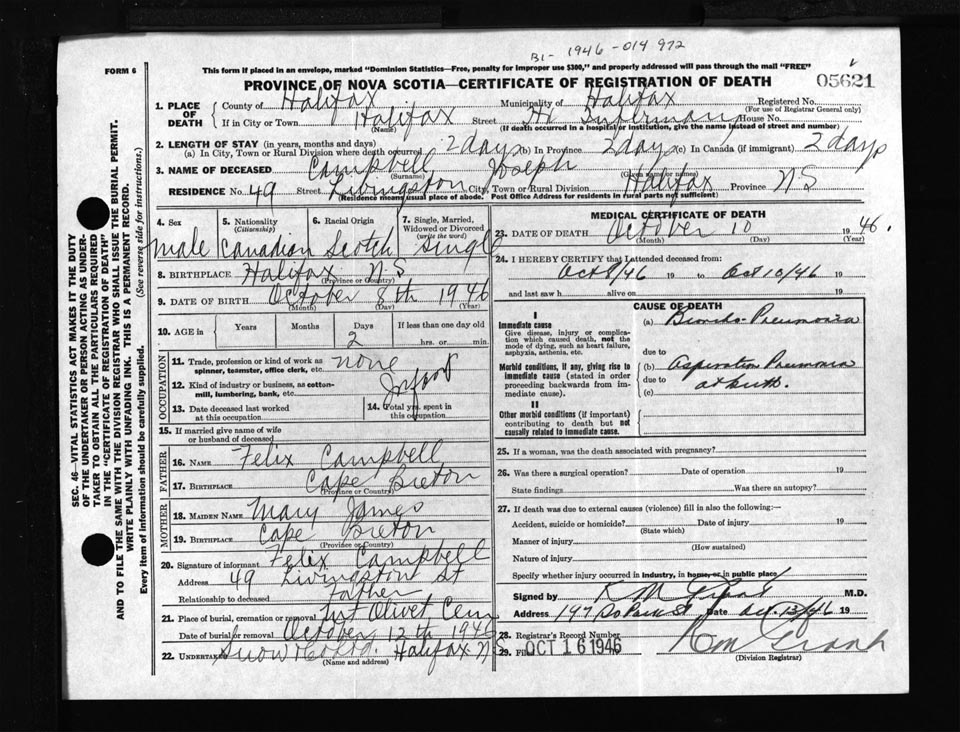 B1- 1946-014972
FORM 6
This form if placed in an envelope, marked "Dominion Statistics—Free, penalty for improper use $300," and properly addressed will pass through the mail "FREE"
PROVINCE OF NOVA SCOTIA—CERTIFICATE OF REGISTRATION OF DEATH
05621
1. PLACE OF DEATH
County of Halifax Municipality of Halifax Registered No.
(For use of Registrar General only)
If in City or Town Halifax Street Infirmary House No.
(Name) (If death occurred in a hospital or institution, give the name instead of street and number)
2. LENGTH OF STAY (in years, months and days)
(a) In City, Town or Rural Division where death occurred 2 days (b) In Province 2 days (c) In Canada (if immigrant) 2 days
3. NAME OF DECEASED Campbell Joseph
(Surname) (Given name or names)
RESIDENCE No. 49 Street Livingston City, Town or Rural Division Halifax Province N S
(Residence means usual place of abode. Post Office Address for residents in rural parts not sufficient)
4. Sex
male
5. Nationality
(Citizenship)
Canadian
6. Racial Origin
Scotch
7. Single, Married, Widowed or Divorced
(write the word)
Single
8. BIRTHPLACE Halifax N.S
(Province or Country)
9. DATE OF BIRTH October 8th 1946
(Month) (Day) (Year)
10. AGE in Years Months Days If less than one day old
2 hrs. or min.
OCCUPATION
11. Trade, profession or kind of work as spinner, teamster, office clerk, etc. none
12. Kind of industry or business, as cotton-mill, lumbering, bank, etc. Infant
13. Date deceased last worked at this occupation
14. Total yrs. spent in this occupation
15. If married give name of wife or husband of deceased
FATHER
16. NAME Felix Campbell
17. BIRTHPLACE Cape Breton
(Province or Country)
MOTHER
18. MAIDEN NAME Mary James
19. BIRTHPLACE Cape Breton
(Province or Country)
20. Signature of informant Felix Campbell
Address 49 Livingston St
Relationship to deceased Father
21. Place of burial, cremation or removal Mt Olivet Cem
Date of burial or removal October 12th 1946
22. Undertaker Snow & Co Ltd. Halifax N S
(Name and address)
MEDICAL CERTIFICATE OF DEATH
23. DATE OF DEATH October 10 1946.
(Month) (Day) (Year)
24. I HEREBY CERTIFY that I attended deceased from:
Oct 8/46 19 to Oct 10/46 19
and last saw h alive on 19
CAUSE OF DEATH
I
Immediate cause
Give disease, injury or complication which caused death, not the mode of dying, such as heart failure, asphyxia, asthenia, etc.
(a) Broncho Pneumonia
due to
Morbid conditions, if any, giving rise to immediate cause (stated in order proceeding backwards from immediate cause).
(b) Aspiration Pneumonia
due to at birth.
(c)
II
Other morbid conditions (if important) contributing to death but not causally related to immediate cause.
25. If a woman, was the death associated with pregnancy?
26. Was there a surgical operation? Date of operation 19
State findings Was there an autopsy?
27. If death was due to external causes (violence) fill in also the following:—
Accident, suicide or homicide? Date of injury 19
(State which)
Manner of injury
(How sustained)
Nature of injury
Specify whether injury occurred in industry, in home, or in public place
Signed by K M Grant M.D.
Address 197 So Park St Date Oct 13/46 19
28. Registrar's Record Number
29. Filed OCT 16 1946 K M Grant
(Division Registrar)
SEC. 46—VITAL STATISTICS ACT MAKES IT THE DUTY
OF THE UNDERTAKER OR PERSON ACTING AS UNDER-
TAKER TO OBTAIN ALL THE PARTICULARS REQUIRED
IN THE "CERTIFICATE OF REGISTRATION OF DEATH"
AND TO FILE THE SAME WITH THE DIVISION REGISTRAR WHO SHALL ISSUE THE BURIAL PERMIT.
WRITE PLAINLY WITH UNFADING INK. THIS IS A PERMANENT RECORD.
Every item of information should be carefully supplied. (See reverse side for instructions.)